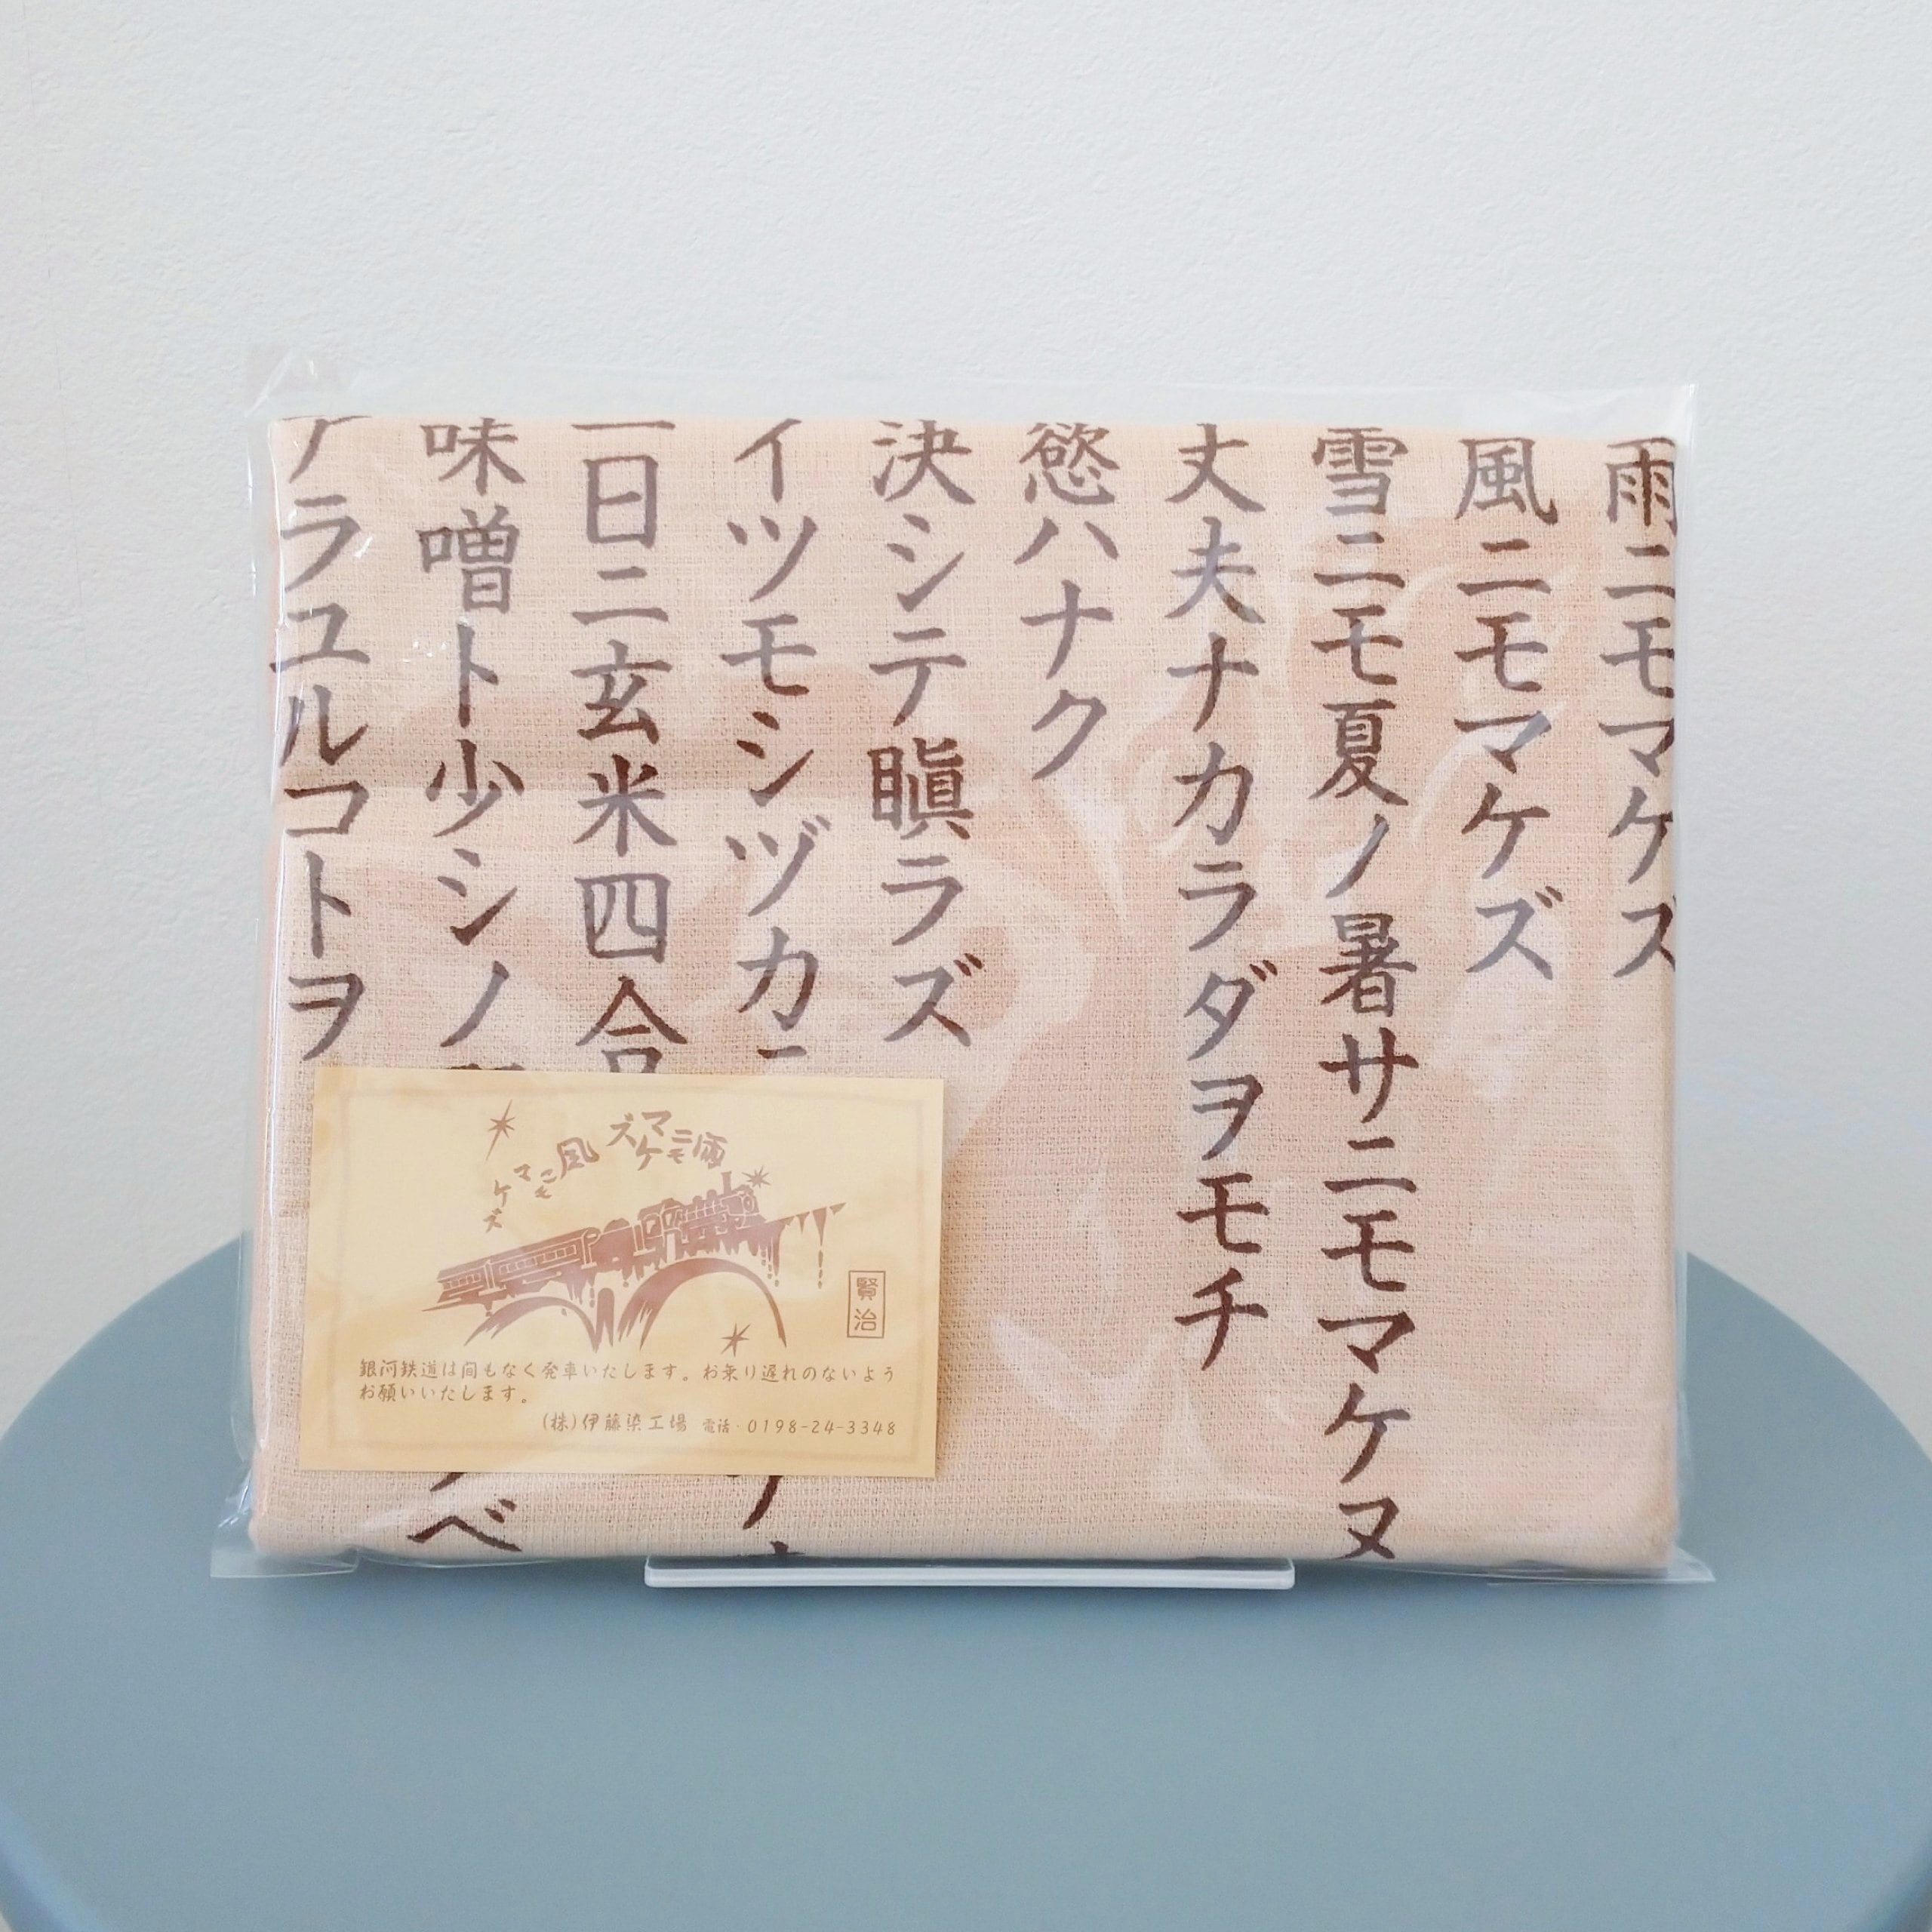 雨ニモマケズ
風ニモマケズ
雪ニモ夏ノ暑サニモマケヌ
丈夫ナカラダヲモチ
慾ハナク
決シテ瞋ラズ
イツモシヅカ
一日ニ玄米四合
味噌ト少シノ
ベ
アラユルコトヲ
雨ニモマケズ
風ニモマケズ
賢治
銀河鉄道は間もなく発車いたします。お乗り遅れのないよう
お願いいたします。
(株)伊藤染工場 電話・0198-24-3348